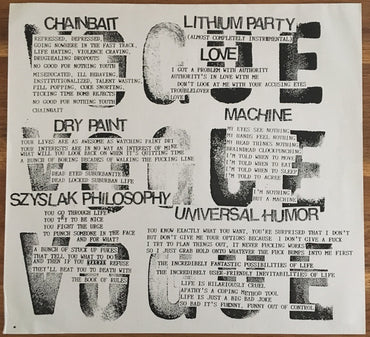 CHAINBAIT
REPRESSED, DEPRESSED,
GOING NOWHERE IN THE FAST TRACK,
LIFE HATING, VIOLENCE CRAVING,
DRUGHEALING DROPOUTS
NO GOOD FOR NOTHING YOUTH
MISEDUCATED, ILL BEHAVING,
INSTITUTIONALIZED, TALENT WASTING,
PILL POPPING, COKE SNORTING,
TICKING TIME BOMB REJECTS
NO GOOD FOR NOTHING YOUTH
CHAINBAIT
LITHIUM PARTY
(ALMOST COMPLETELY INSTRUMENTAL)
LOVE
I GOT A PROBLEM WITH AUTHORITY
AUTHORITY'S IN LOVE WITH ME
DON'T LOOK AT ME WITH YOUR ACCUSING EYES
TROUBLELOVER
LOVE
DRY PAINT
YOUR LIVES ARE AS AWESOME AS WATCHING PAINT DRY
YOUR INTERESTS ARE IN NO WAY AN INTEREST OF MINE
WHAT WILL YOU LOOK AT WHEN IT'S QUITTING TIME
A BUNCH OF BORING DECADES OF WALKING THE FUCKING LINE
DEAD EYED SUBURBANITE
DEAD LOCKED SUBURBAN LIFE
MACHINE
MY EYES SEE NOTHING
MY HANDS FEEL NOTHING
MY HEAD THINKS NOTHING
BRAINDEAD CLOCKPUNCHIN'
I'M TOLD WHEN TO MOVE
I'M TOLD WHEN TO EAT
I'M TOLD WHEN TO SLEEP
I'M TOLD TO AGREE
I'M NOTHING
BUT A MACHINE
SZYSLAK PHILOSOPHY
YOU GO THROUGH LIFE
YOU TRY TO BE NICE
YOU FIGHT THE URGE
TO PUNCH SOMEONE IN THE FACE
AND FOR WHAT?
A BUNCH OF STUCK UP PRICKS
THAT TELL YOU WHAT TO DO
AND THEN IF YOU REFUSE
THEY'LL BEAT YOU TO DEATH WITH
THE BOOK OF RULES
UNIVERSAL HUMOR
YOU KNOW EXACTLY WHAT YOU WANT, YOU'RE SURPRISED THAT I DON'T
BUT DON'T GIVE ME YOUR OPTIONS BECAUSE I DON'T GIVE A FUCK
I TRY TO PLAN THINGS OUT, IT NEVER FUCKING WORKS
SO I JUST GRAB HOLD ONTO WHATEVER THE FUCK BUMPS INTO ME FIRST
THE INCREDIBLY FANTASTIC POSSIBILITIES OF LIFE
THE INCREDIBLY USER-FRIENDLY INEVITABILITIES OF LIFE
LIFE IS HILARIOUSLY CRUEL
APATHY'S A COPING METHOD TOOL
LIFE IS JUST A BIG BAD JOKE
SO BAD IT'S FUNNY, FUNNY OUT OF CONTROL
VOGUE
VOGUE
VOGUE